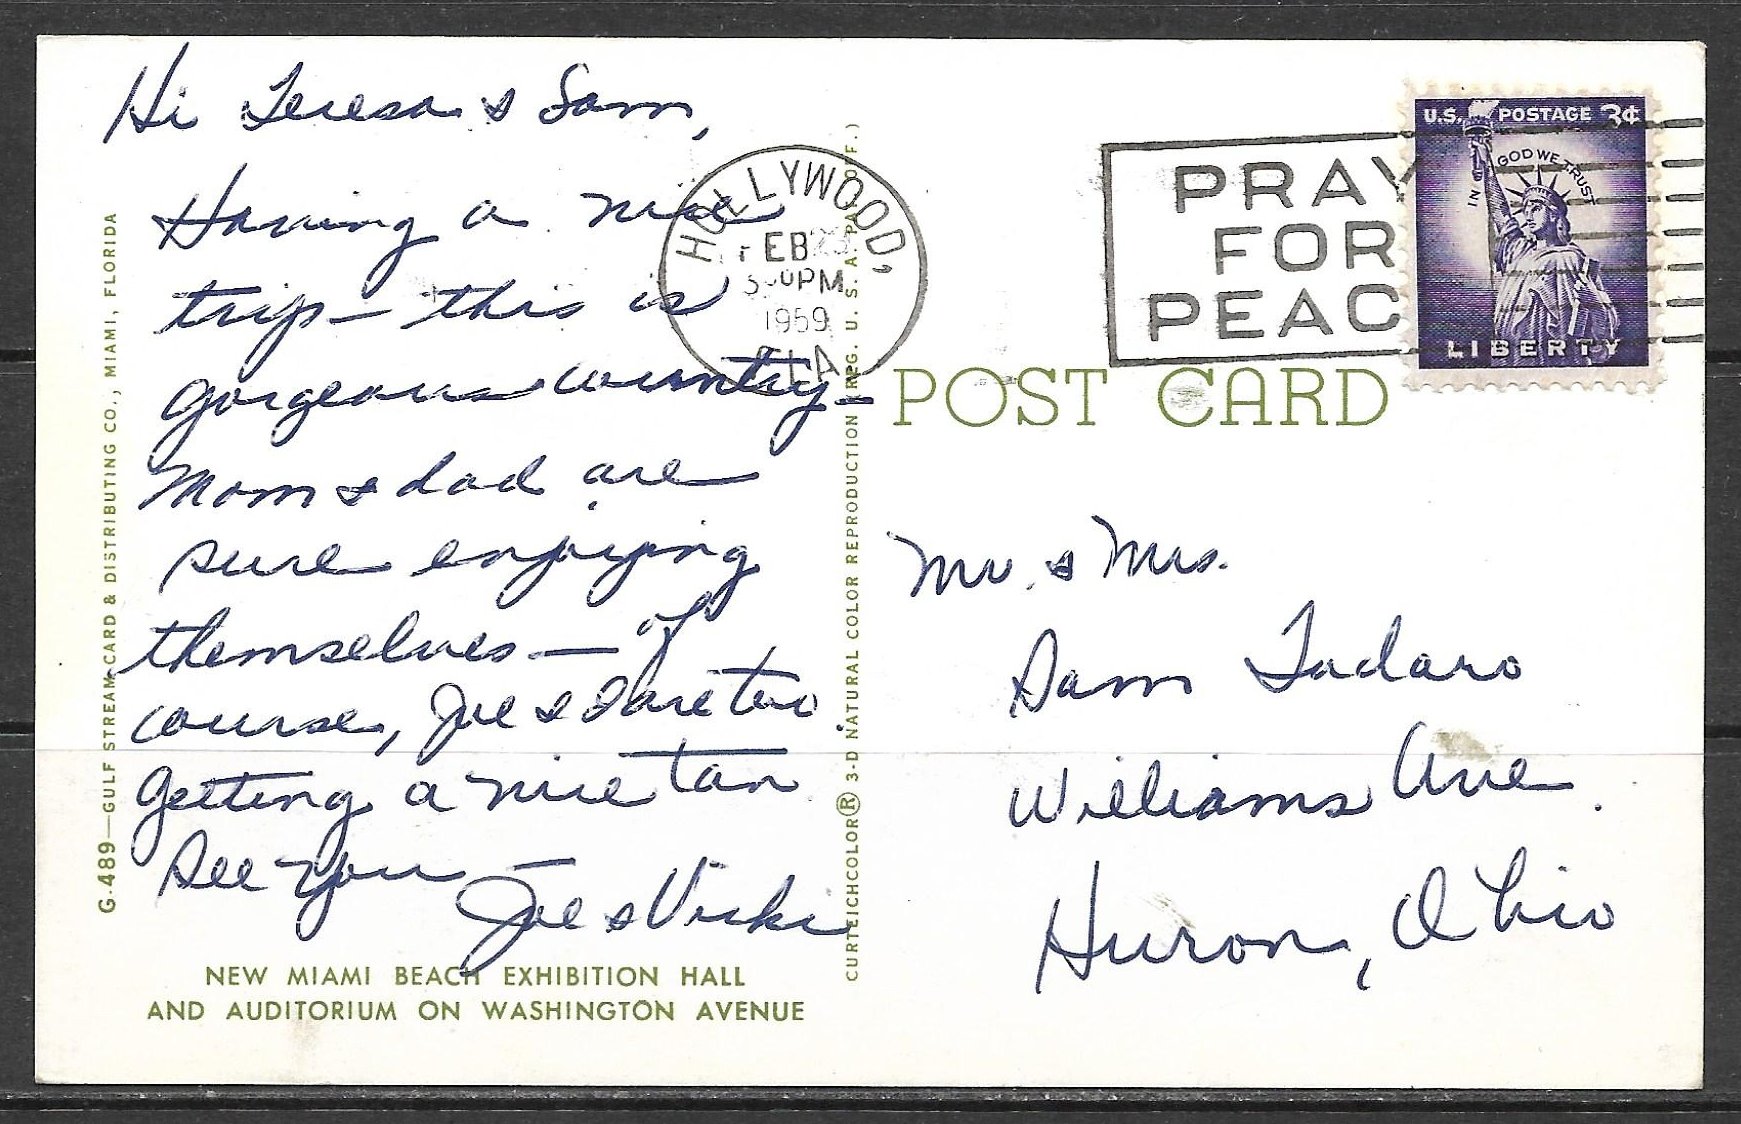 Hi Teresa & Sam,
Having a nice
trip – this is
gorgeous country –
Mom & dad are
sure enjoying
themselves – of
course, Joe & I are too.
Getting a nice tan
See you –
Joe & Vicki
NEW MIAMI BEACH EXHIBITION HALL
AND AUDITORIUM ON WASHINGTON AVENUE
G.489—GULF STREAM CARD & DISTRIBUTING CO., MIAMI, FLORIDA
CURTEICHCOLOR® 3-D NATURAL COLOR REPRODUCTION (REG. U. S. A. PAT. OFF.)
HOLLYWOOD,
FEB 23
PM
1959
FLA
PRAY
FOR
PEAC
U.S. POSTAGE 3¢
IN GOD WE TRUST
LIBERTY
POST CARD
Mr. & Mrs.
Sam Tadaro
Williams Ave.
Huron, Ohio